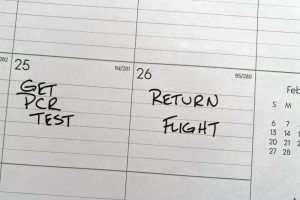 /282
25 84/281
26 85/280
GET
PCR
TEST
RETURN
FLIGHT
Feb
S M
6 7
13 14
20 21
27 28